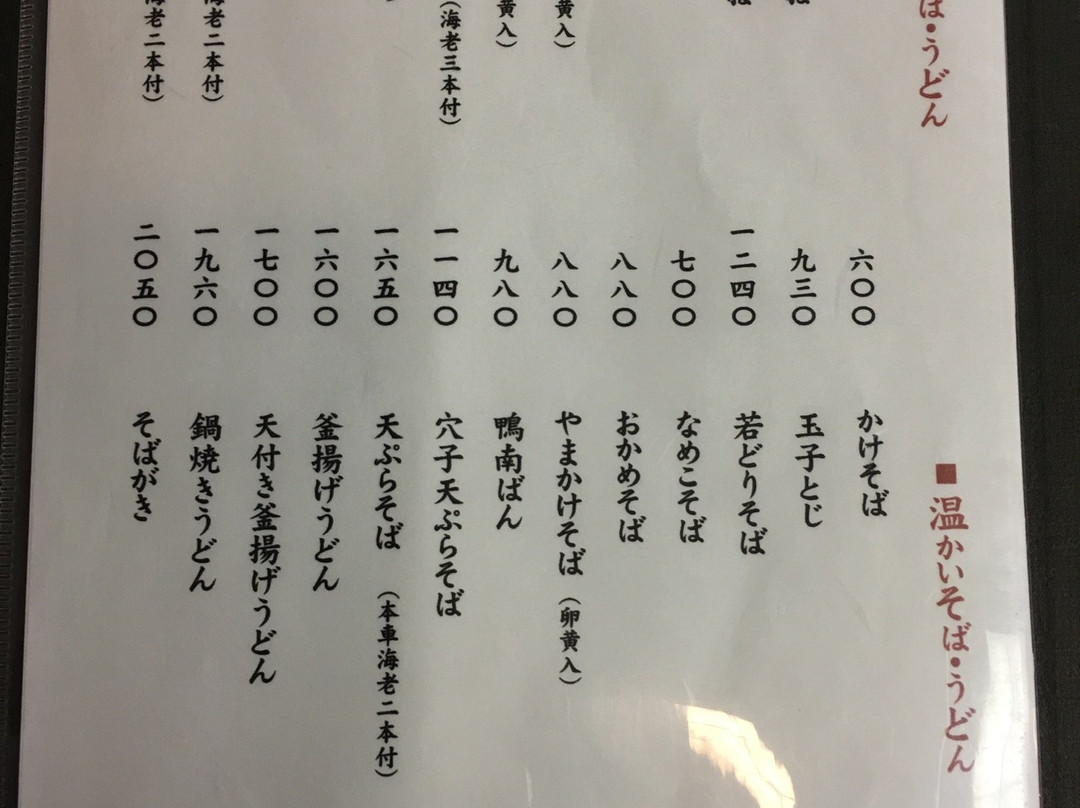 ば・うどん
六〇〇
九三〇
一二四〇
七〇〇
八八〇
黄入）
八八〇
黄入）
九八〇
（海老三本付）
一一四〇
一六五〇
一六〇〇
一七〇〇
海老二本付）
一九六〇
海老二本付）
二〇五〇
■温かいそば・うどん
かけそば
玉子とじ
若どりそば
なめこそば
おかめそば
やまかけそば（卵黄入）
鴨南ばん
穴子天ぷらそば
天ぷらそば（本車海老二本付）
釜揚げうどん
天付き釜揚げうどん
鍋焼きうどん
そばがき